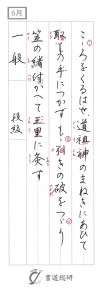 6月
こゝろをくるはせ道祖神のまねきにあひて
取もの手につかずもゝ引きの破をつゞり
笠の緒付かへて三里に灸す
一般 段級
書道総研